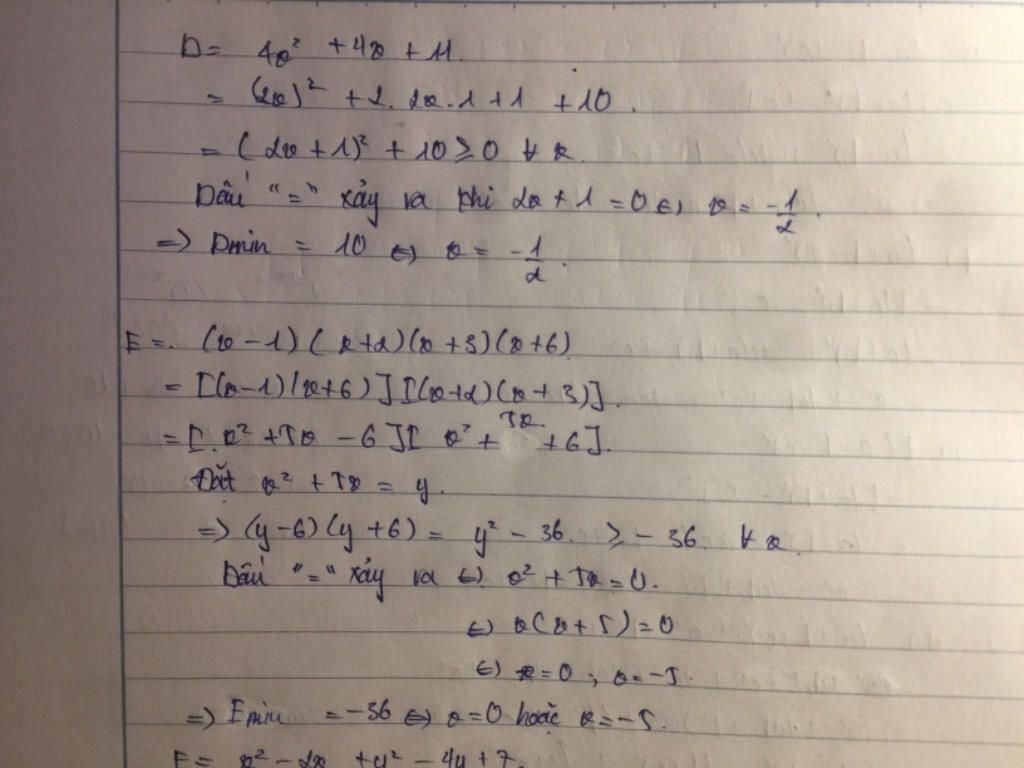 D = 4x² + 4x + 11.
= (2x)² + 2. 2x.1 + 1 + 10.
= (2x + 1)² + 10 ≥ 0 ∀ x
Dấu "=" xảy ra khi 2x + 1 = 0 ⇔ x = -1/2.
=> Dmin = 10 ⇔ x = -1/2.
E = (x - 1)(x + 2)(x + 3)(x + 6)
= [(x - 1)(x + 6)][(x + 2)(x + 3)].
= [x² + 5x - 6][x² + 5x + 6].
Đặt x² + 5x = y.
=> (y - 6)(y + 6) = y² - 36. ≥ - 36. ∀ x.
Dấu "=" xảy ra ⇔ x² + 5x = 0.
⇔ x(x + 5) = 0
⇔ x = 0 ; x = -5.
=> Emin = -36 ⇔ x = 0 hoặc x = -5.
F = x² - 2x + y² - 4y + 7.